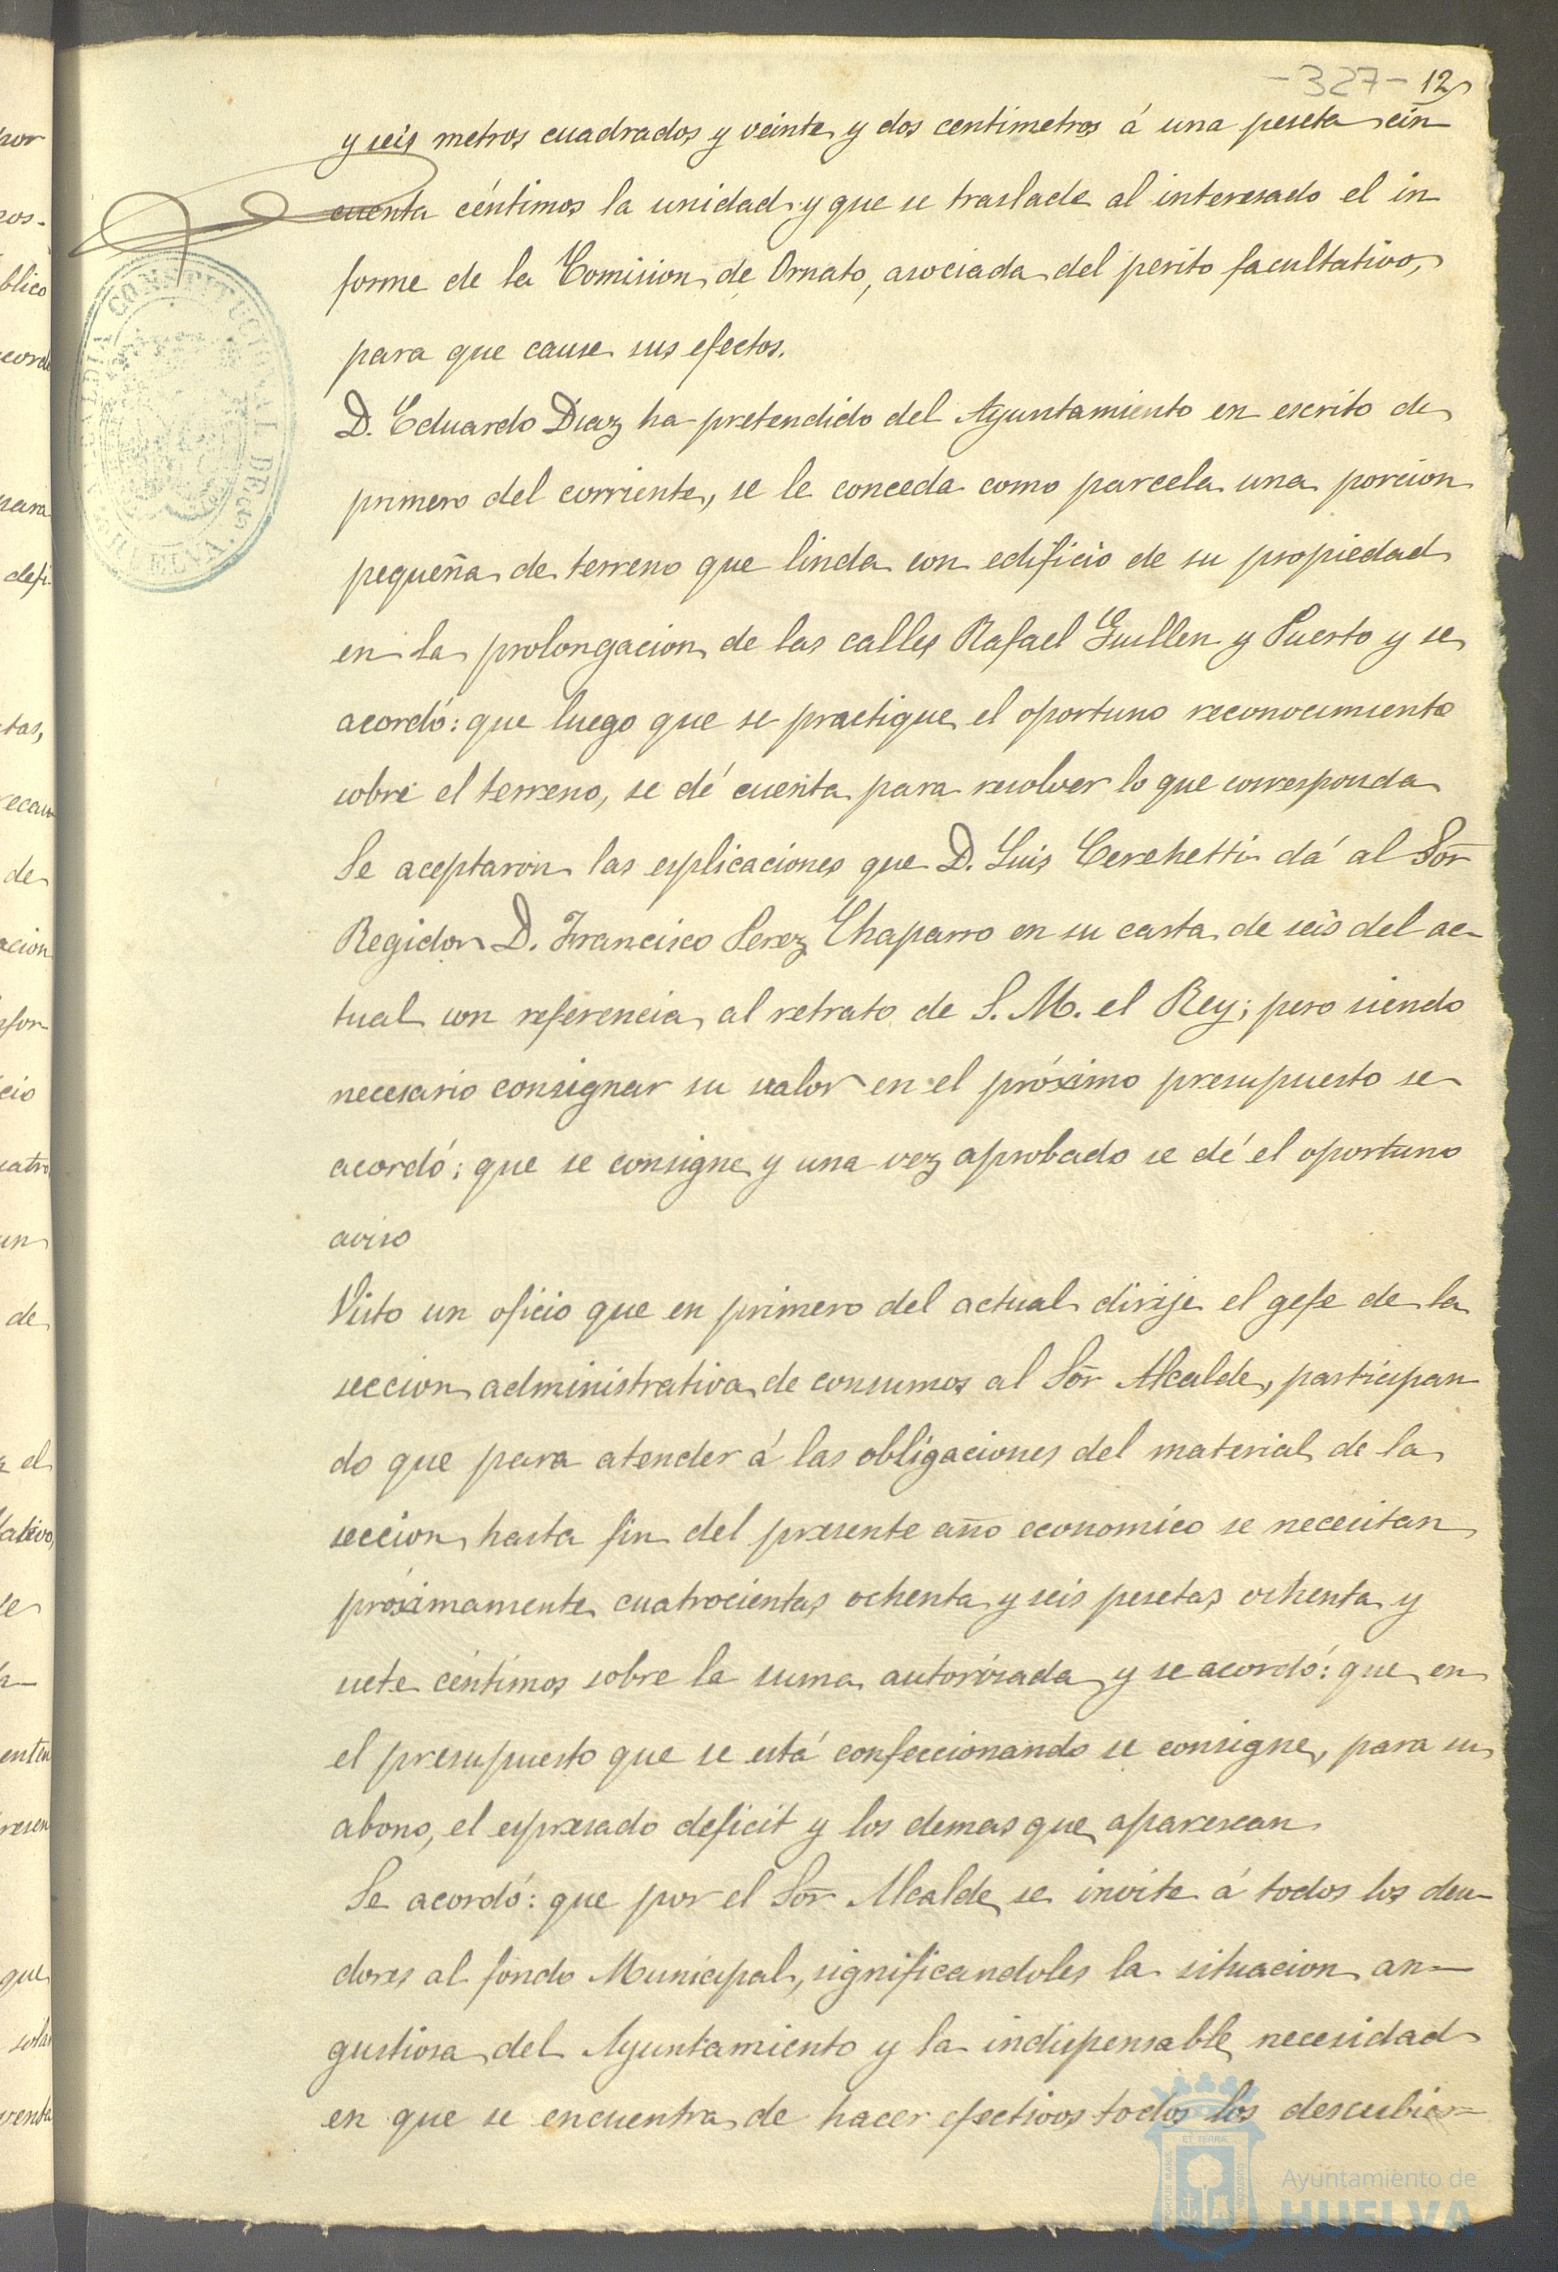 -327- 12
y seis metros cuadrados y veinte y dos centimetros á una peseta cin
cuenta céntimos la unidad y que se traslade al interesado el in
forme de la Comision de Ornato, asociada del perito facultativo,
para que cause sus efectos.
D. Eduardo Diaz ha pretendido del Ayuntamiento en escrito de
primero del corriente, se le conceda como parcela una porcion
pequeña de terreno que linda con edificio de su propiedad
en la prolongacion de las calles Rafael Guillen y Puerto y se
acordó: que luego que se practique el oportuno reconocimiento
sobre el terreno, se dé cuenta para resolver lo que corresponda
Se aceptaron las esplicaciones que D. Luis Cerchetti dá al Sor
Regidor D. Francisco Perez Chaparro en su carta de seis del ac-
tual con referencia al retrato de S. M. el Rey; pero siendo
necesario consignar su valor en el próximo presupuesto se
acordó: que se consigne y una vez aprobado se dé el oportuno
aviso
Visto un oficio que en primero del actual dirije el gefe de la
seccion administrativa de consumos al Sor Alcalde, participan
do que para atender á las obligaciones del material de la
seccion hasta fin del presente año economico se necesitan
próximamente cuatrocientas ochenta y seis pesetas ochenta y
siete céntimos sobre la suma autorizada y se acordó: que en
el presupuesto que se está confeccionando se consigne, para su
abono, el espresado deficit y los demas que aparezcan
Se acordó: que por el Sor Alcalde se invite á todos los deu-
dores al fondo Municipal, significandoles la situacion an-
gustiosa del Ayuntamiento y la indispensable necesidad
en que se encuentra de hacer efectivos todos los descubier-
ALCALDIA CONSTITUCIONAL DE HUELVA
Ayuntamiento de
HUELVA